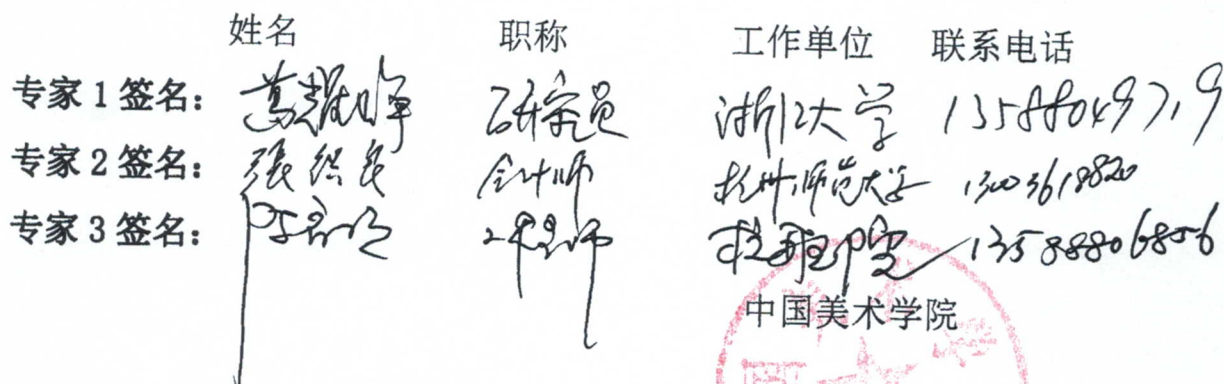 姓名 职称 工作单位 联系电话
专家1签名： 研究员 浙江大学 13588049719
专家2签名： 張 会计师 杭州师范大学 13003618820
专家3签名： 工程师 13588806856
中国美术学院